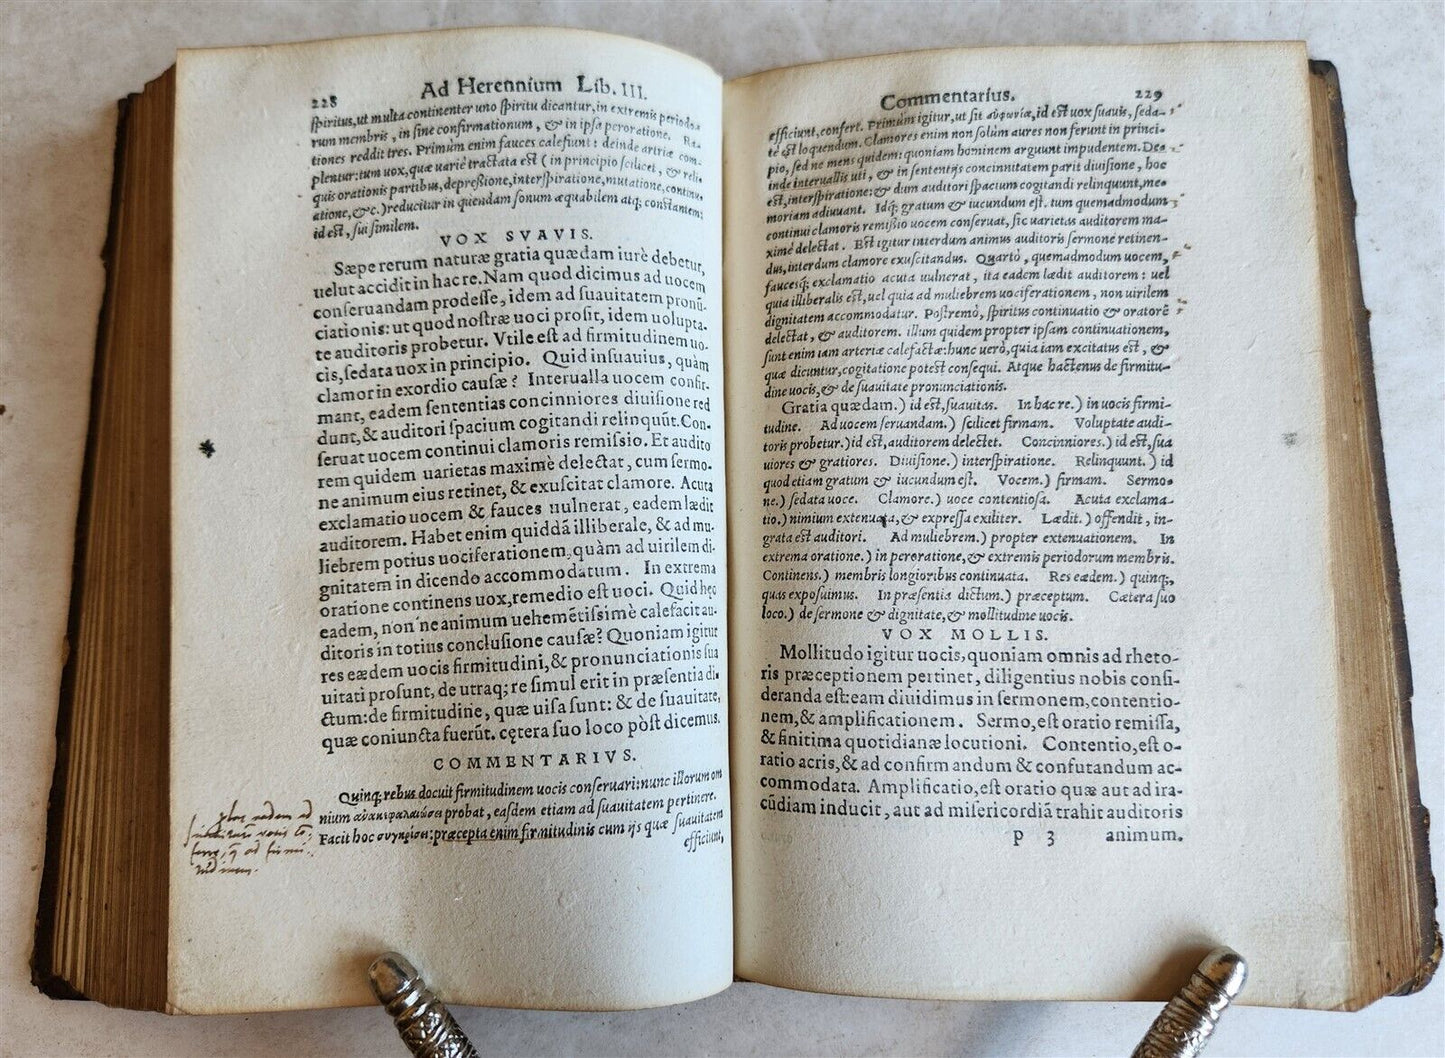 228 Ad Herennium Lib. III.
spiritus, ut multa continenter uno spiritu dicantur, in extremis periodo-
rum membris, in fine confirmationum, & in ipsa peroratione. Ra-
tiones reddit tres. Primùm enim fauces calefiunt: deinde artriæ com-
plentur: tum uox, quæ uariè tractata est (in principio scilicet, & reli-
quis orationis partibus, depreßione, interspiratione, mutatione, continu-
atione, &c.) reducitur in quendam sonum æquabilem atq; constantem:
id est, sui similem.
VOX SVAVIS.
Sæpe rerum naturæ gratia quædam iurè debetur,
uelut accidit in hac re. Nam quod dicimus ad uocem
conseruandam prodesse, idem ad suauitatem pronũ-
ciationis: ut quod nostræ uoci prosit, idem uolupta-
te auditoris probetur. Vtile est ad firmitudinem uo-
cis, sedata uox in principio. Quid insuauius, quàm
clamor in exordio causæ? Interualla uocem confir-
mant, eadem sententias concinniores diuisione red
dunt, & auditori spacium cogitandi relinquũt. Con-
seruat uocem continui clamoris remissio. Et audito
rem quidem uarietas maximè delectat, cum sermo-
ne animum eius retinet, & exuscitat clamore. Acuta
exclamatio uocem & fauces uulnerat, eadem lædit
auditorem. Habet enim quiddã illiberale, & ad mu-
liebrem potius uociferationem, quàm ad uirilem di-
gnitatem in dicendo accommodatum. In extrema
oratione continens uox, remedio est uoci. Quid hęc
eadem, non'ne animum uehemẽtissimè calefacit au-
ditoris in totius conclusione causæ? Quoniam igitur
res eædem uocis firmitudini, & pronunciationis sua
uitati prosunt, de utraq; re simul erit in præsentia di-
ctum: de firmitudine, quæ uisa sunt: & de suauitate,
quæ coniuncta fuerũt. cętera suo loco pòst dicemus.
COMMENTARIVS.
Quinq; rebus docuit firmitudinem uocis conseruari: nunc illorum om
nium ἀνακεφαλαιώσει probat, easdem etiam ad suauitatem pertinere.
Facit hoc συγκρίσει: præcepta enim firmitudinis cum ijs quæ suauitatem
efficiunt,
Commentarius. 229
efficiunt, confert. Primùm igitur, ut sit εὐφωνία, id est uox suauis, seda-
tè est loquendum. Clamores enim non solùm aures non ferunt in princi-
pio, sed ne mens quidem: quoniam hominem arguunt impudentem. De-
inde interuallis uti, & in sententijs concinnitatem parit diuisione, hoc
est, interspiratione: & dum auditori spacium cogitandi relinquunt, me-
moriam adiuuant. Idq; gratum & iucundum est. tum quemadmodum
continui clamoris remißio uocem conseruat, sic uarietas auditorem ma-
ximè delectat. Est igitur interdum animus auditoris sermone retinen-
dus, interdum clamore exuscitandus. Quartò, quemadmodum uocem,
faucesq; exclamatio acuta uulnerat, ita eadem lædit auditorem: uel
quia illiberalis est, uel quia ad muliebrem uociferationem, non uirilem
dignitatem accommodatur. Postremò, spiritus continuatio & oratorẽ
delectat, & auditorem. illum quidem propter ipsam continuationem,
sunt enim iam arteriæ calefactæ: hunc uerò, quia iam excitatus est, &
quæ dicuntur, cogitatione potest consequi. Atque hactenus de firmitu-
dine uocis, & de suauitate pronunciationis.
Gratia quædam.) id est, suauitas. In hac re.) in uocis firmi-
tudine. Ad uocem seruandam.) scilicet firmam. Voluptate audi-
toris probetur.) id est, auditorem delectet. Concinniores.) id est, sua
uiores & gratiores. Diuisione.) interspiratione. Relinquunt.) id
quod etiam gratum & iucundum est. Vocem.) firmam. Sermo-
ne.) sedata uoce. Clamore.) uoce contentiosa. Acuta exclama-
tio.) nimium extenuata, & expressa exiliter. Lædit.) offendit, in-
grata est auditori. Ad muliebrem.) propter extenuationem. In
extrema oratione.) in peroratione, & extremis periodorum membris.
Continens.) membris longioribus continuata. Res eædem.) quinq;,
quas exposuimus. In præsentia dictum.) præceptum. Cætera suo
loco.) de sermone & dignitate, & mollitudine uocis.
VOX MOLLIS.
Mollitudo igitur uocis, quoniam omnis ad rheto-
ris præceptionem pertinet, diligentius nobis consi-
deranda est: eam diuidimus in sermonem, contentio-
nem, & amplificationem. Sermo, est oratio remissa,
& finitima quotidianæ locutioni. Contentio, est o-
ratio acris, & ad confirmandum & confutandum ac-
commodata. Amplificatio, est oratio quæ aut ad ira-
cũdiam inducit, aut ad misericordiã trahit auditoris
p 3 animum.